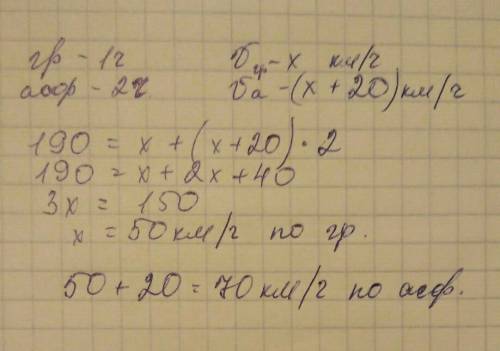 гр - 1ч vгр - x км/ч
асф - 2ч vа - (x + 20) км/ч
190 = x + (x + 20) · 2
190 = x + 2x + 40
3x = 150
x = 50 км/ч по гр.
50 + 20 = 70 км/ч по асф.